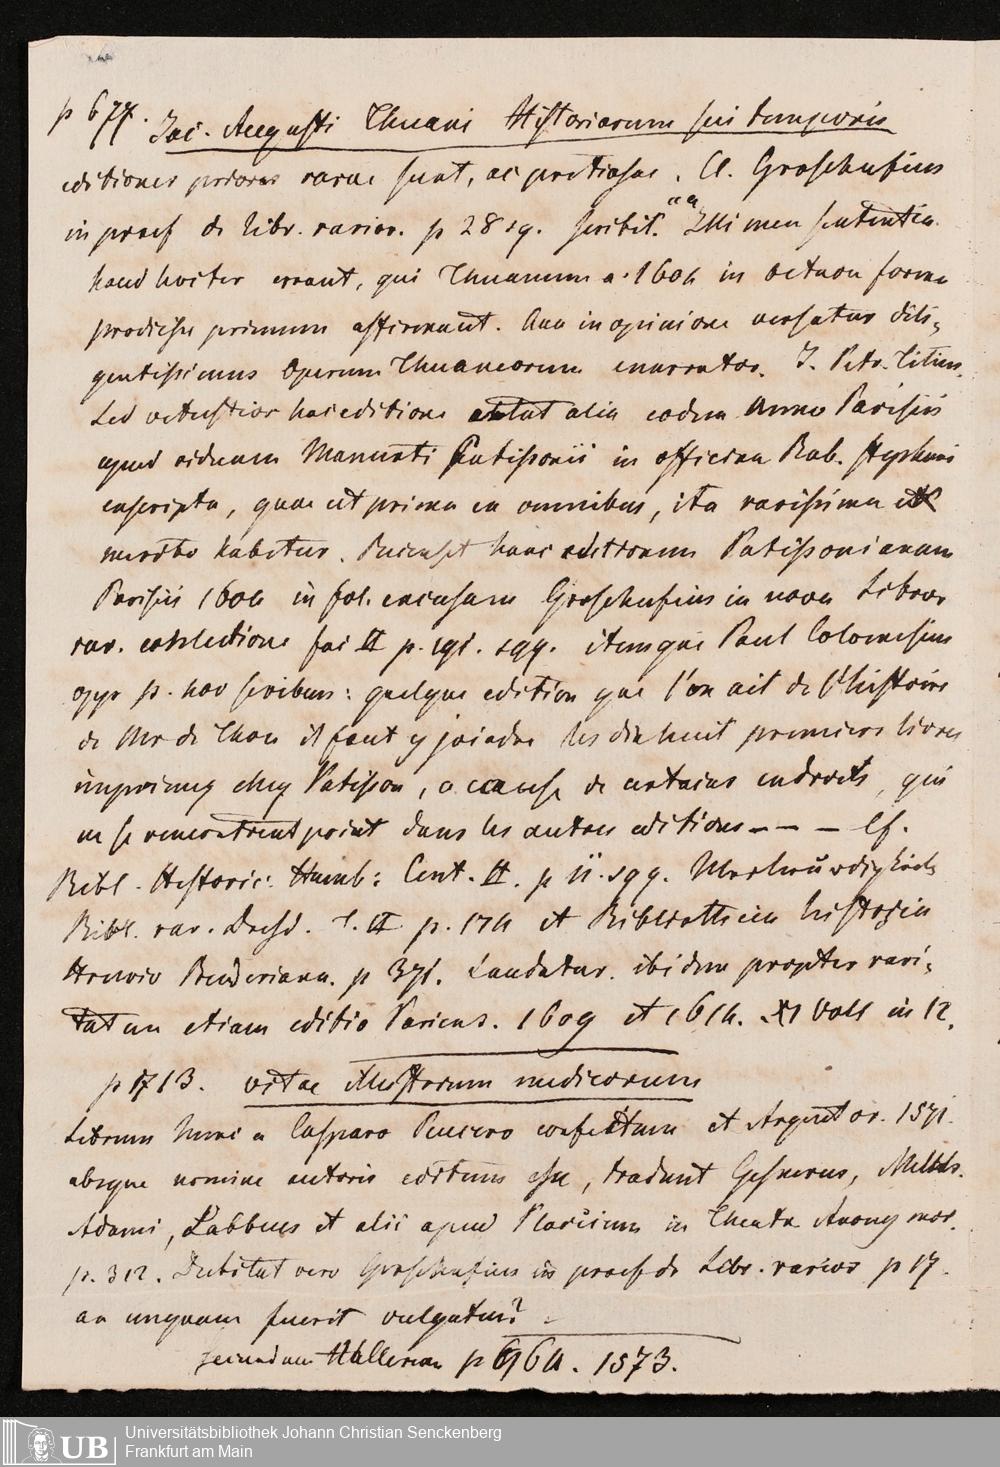 p 677. Jac. Augusti Thuani Historiarum sui temporis
editiones priores rarae sunt, ac pretiosae. Cl. Groschufius
in praef de libr. rarior. p 28 sq. scribit: "Illi mea sententia
haud leviter errant, qui Thuanum a. 1604 in octava forma
prodiisse primum affirmant. Qua in opinione versatur dili-
gentissimus Operum Thuaneorum enarrator. J. Petr. Titius.
Sed vetustior hac editione extat alia eodem Anno Parisiis
apud viduam Mamerti Patissonii in officina Rob. Stephani
exscripta, quae ut prima ex omnibus, ita rarissima
merito habetur. Recenset hanc editionem Patissonianam
Parisiis 1604 in fol. excusam Groschufius in nova Libror
rar. collectione fasc II p. 191. sqq. itemque Paul Colomesius
opp p. scribens: quelque edition que l'on ait de l'histoire
de Mr de Thou il faut y joindre les dix huit premiers livres
imprimez chez Patisson, a cause de certains endroits, qui
ne se rencontrent point dans les autres editions - - - Cf.
Bibl. Historic: Hamb: Cent. II. p 11. sqq. Merkwürdigkeit
Bibl. rar. Dresd. T. II p. 174 et Bibliotheca historica
Struvio Buderiana. p 371. Laudatur ibidem propter rari-
tatem etiam editio Pariens. 1609 et 1614. XI Voll in 12.
p 1713. vitae illustrium medicorum
Librum hunc a Casparo Peucero confectum et Argentor. 1571.
absque nomine autoris editum esse, tradunt Gesnerus, Melch.
Adami, Labbeus et alii apud Placcium in Theatr Anonymor.
p. 312. Dubitat vero Groschufius in praef de Libr. rarior p 17.
an unquam fuerit vulgatus?
secundum Hallerum p 964. 1573.
Universitätsbibliothek Johann Christian Senckenberg
Frankfurt am Main
UB